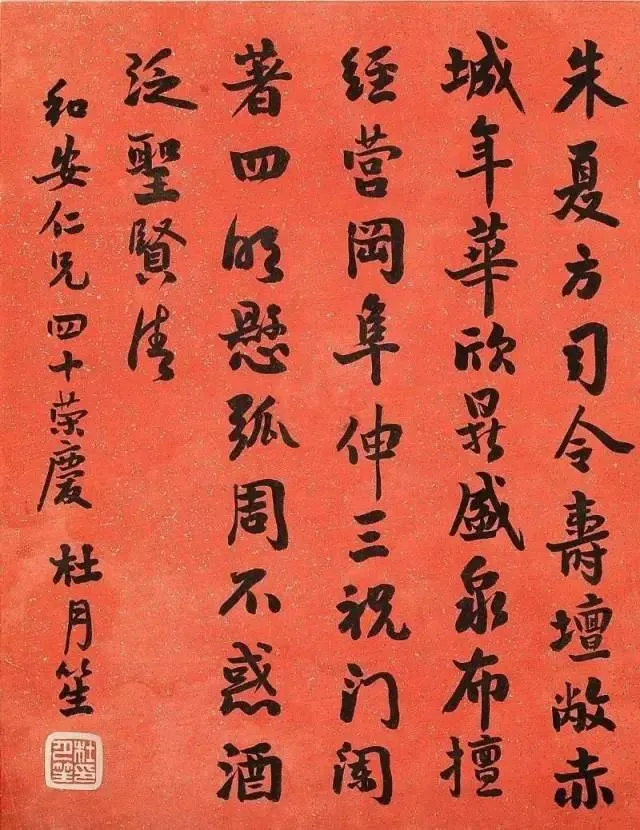 朱夏方司令壽壇敞赤
城年華欣鼎盛泉布擅
經营岡阜伸三祝门阑
著四明懸弧周不惑酒
泛聖賢清
和安仁兄四十荣慶 杜月笙